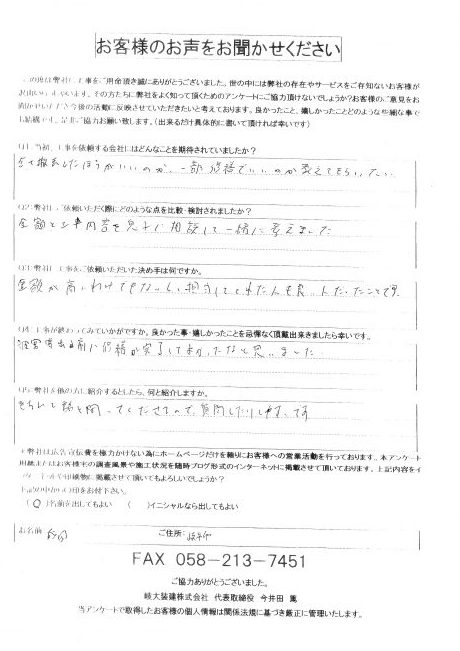 お客様のお声をお聞かせください
この度は弊社に工事をご用命頂き誠にありがとうございました。世の中には弊社の存在やサービスをご存知ないお客様が
沢山いらっしゃいます。その方たちに弊社をよく知って頂くためのアンケートにご協力頂けないでしょうか?お客様のご意見をお
聞かせいただき今後の活動に反映させていただきたいと考えております。良かったこと、嬉しかったことどのような些細な事で
も結構です。是非ご協力お願い致します。(出来るだけ具体的に書いて頂ければ幸いです)
Q1:当初、工事を依頼する会社にはどんなことを期待されていましたか?
全て撤去したほうがいいのか、一部改修でいいのか考えてもらいたい
Q2:弊社にご依頼いただく際にどのような点を比較・検討されましたか?
金額と工事内容を見せて相談して一緒に考えました
Q3:弊社に工事をご依頼いただいた決め手は何ですか。
金額が高いわけでもないし、担当してくれた人も良い人だったことです
Q4:工事が終わってみていかがですか。良かった事・嬉しかったことを忌憚なく頂戴出来ましたら幸いです。
Q5:弊社を他の方に紹介するとしたら、何と紹介しますか。
きちんと話を聞いてくださるので、質問したりしやすいです
※弊社は広告宣伝費を極力かけない為にホームページだけを頼りにお客様への営業活動を行っております。本アンケート
用紙またはお客様宅の調査風景や施工状況を随時ブログ形式のインターネットに掲載させて頂いております。上記内容をイ
ンターネットや印刷物に掲載させて頂いてもよろしいでしょうか?
下記の中から○印をお付け下さい。
(○)名前を出してもよい ( )イニシャルなら出してもよい
お名前 ご住所:
FAX 058-213-7451
ご協力ありがとうございました。
岐大装建株式会社 代表取締役 今井田 篤
当アンケートで取得したお客様の個人情報は関係法規に基づき厳正に管理いたします。